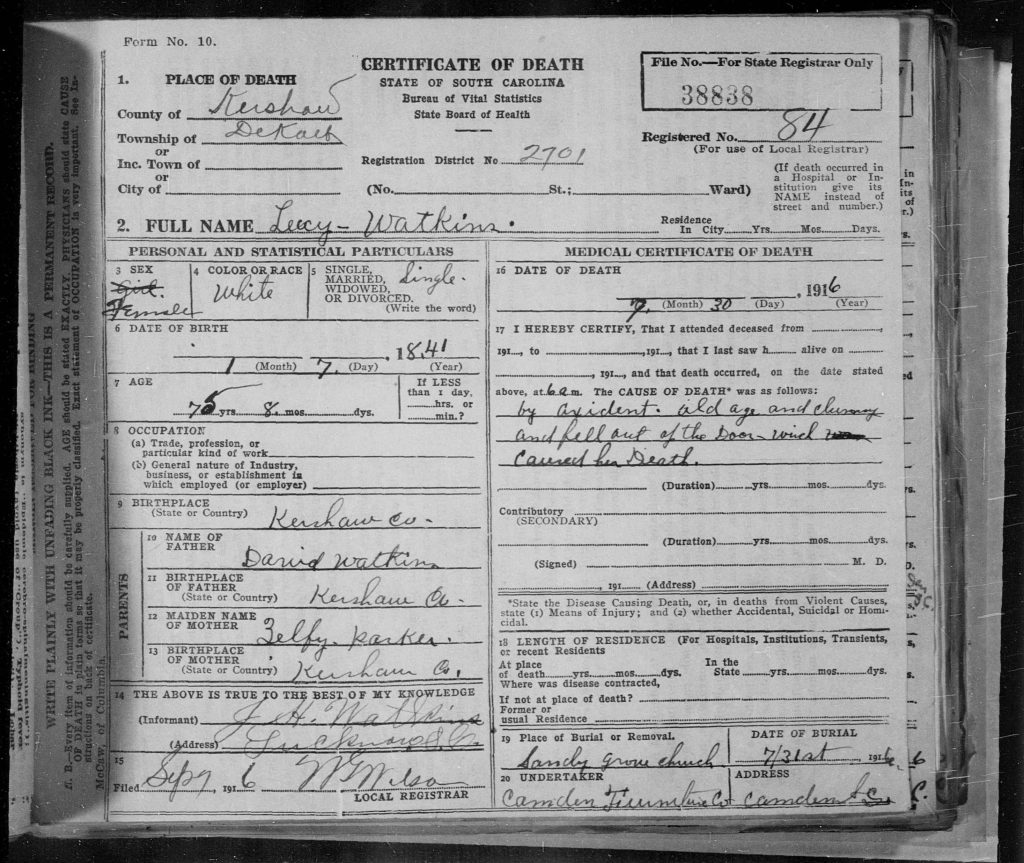 Form No. 10.
CERTIFICATE OF DEATH
STATE OF SOUTH CAROLINA
Bureau of Vital Statistics
State Board of Health
File No.—For State Registrar Only
38838
1. PLACE OF DEATH
County of Kershaw
Township of DeKalb
or
Inc. Town of
or
City of
Registration District No 2701
Registered No. 84
(For use of Local Registrar)
(No. St.; Ward)
(If death occurred in
a Hospital or In-
stitution give its
NAME instead of
street and number.)
2. FULL NAME Lucy Watkins.
Residence
In City Yrs. Mos. Days.
PERSONAL AND STATISTICAL PARTICULARS
3 SEX
Girl.
Female
4 COLOR OR RACE
White
5 SINGLE,
MARRIED,
WIDOWED,
OR DIVORCED.
(Write the word)
Single.
6 DATE OF BIRTH
1 7, 1841
(Month) (Day) (Year)
7 AGE
75 yrs 8. mos. ds.
If LESS
than 1 day,
hrs. or
min.?
8 OCCUPATION
(a) Trade, profession, or
particular kind of work
(b) General nature of Industry,
business, or establishment in
which employed (or employer)
9 BIRTHPLACE
(State or Country) Kershaw Co.
PARENTS
10 NAME OF
FATHER David Watkins
11 BIRTHPLACE
OF FATHER
(State or Country) Kershaw Co.
12 MAIDEN NAME
OF MOTHER Zelfy Parker.
13 BIRTHPLACE
OF MOTHER
(State or Country) Kershaw Co.
14 THE ABOVE IS TRUE TO THE BEST OF MY KNOWLEDGE
(Informant) J. H. Watkins
(Address) Lucknow S.C.
15
Filed Sep 7 1916 W Wilson
LOCAL REGISTRAR
MEDICAL CERTIFICATE OF DEATH
16 DATE OF DEATH
7. 30, 1916
(Month) (Day) (Year)
17 I HEREBY CERTIFY, That I attended deceased from
191, to, 191, that I last saw h alive on
, 191, and that death occurred, on the date stated
above, at 6 a m. The CAUSE OF DEATH* was as follows:
by axident. old age and clumsy
and fell out of the Door wich
caused her Death.
(Duration) yrs. mos. dys.
Contributory
(SECONDARY)
(Duration) yrs. mos. dys.
(Signed) M. D.
, 191 (Address)
*State the Disease Causing Death, or, in deaths from Violent Causes,
state (1) Means of Injury; and (2) whether Accidental, Suicidal or Homi-
cidal.
18 LENGTH OF RESIDENCE (For Hospitals, Institutions, Transients,
or recent Residents
At place
of death yrs. mos. dys.
In the
State yrs. mos. dys.
Where was disease contracted,
If not at place of death?
Former or
usual Residence
19 Place of Burial or Removal.
Sandy grove church
DATE OF BURIAL
7/31st 1916
20 UNDERTAKER
Camden Furniture Co
ADDRESS
Camden S.C.
WRITE PLAINLY WITH UNFADING BLACK INK—THIS IS A PERMANENT RECORD.
N. B.—Every item of information should be carefully supplied. AGE should be stated EXACTLY. PHYSICIANS should state CAUSE
OF DEATH in plain terms so that it may be properly classified. Exact statement of OCCUPATION is very important. See In-
structions on back of certificate.
McCaw, of Columbia.